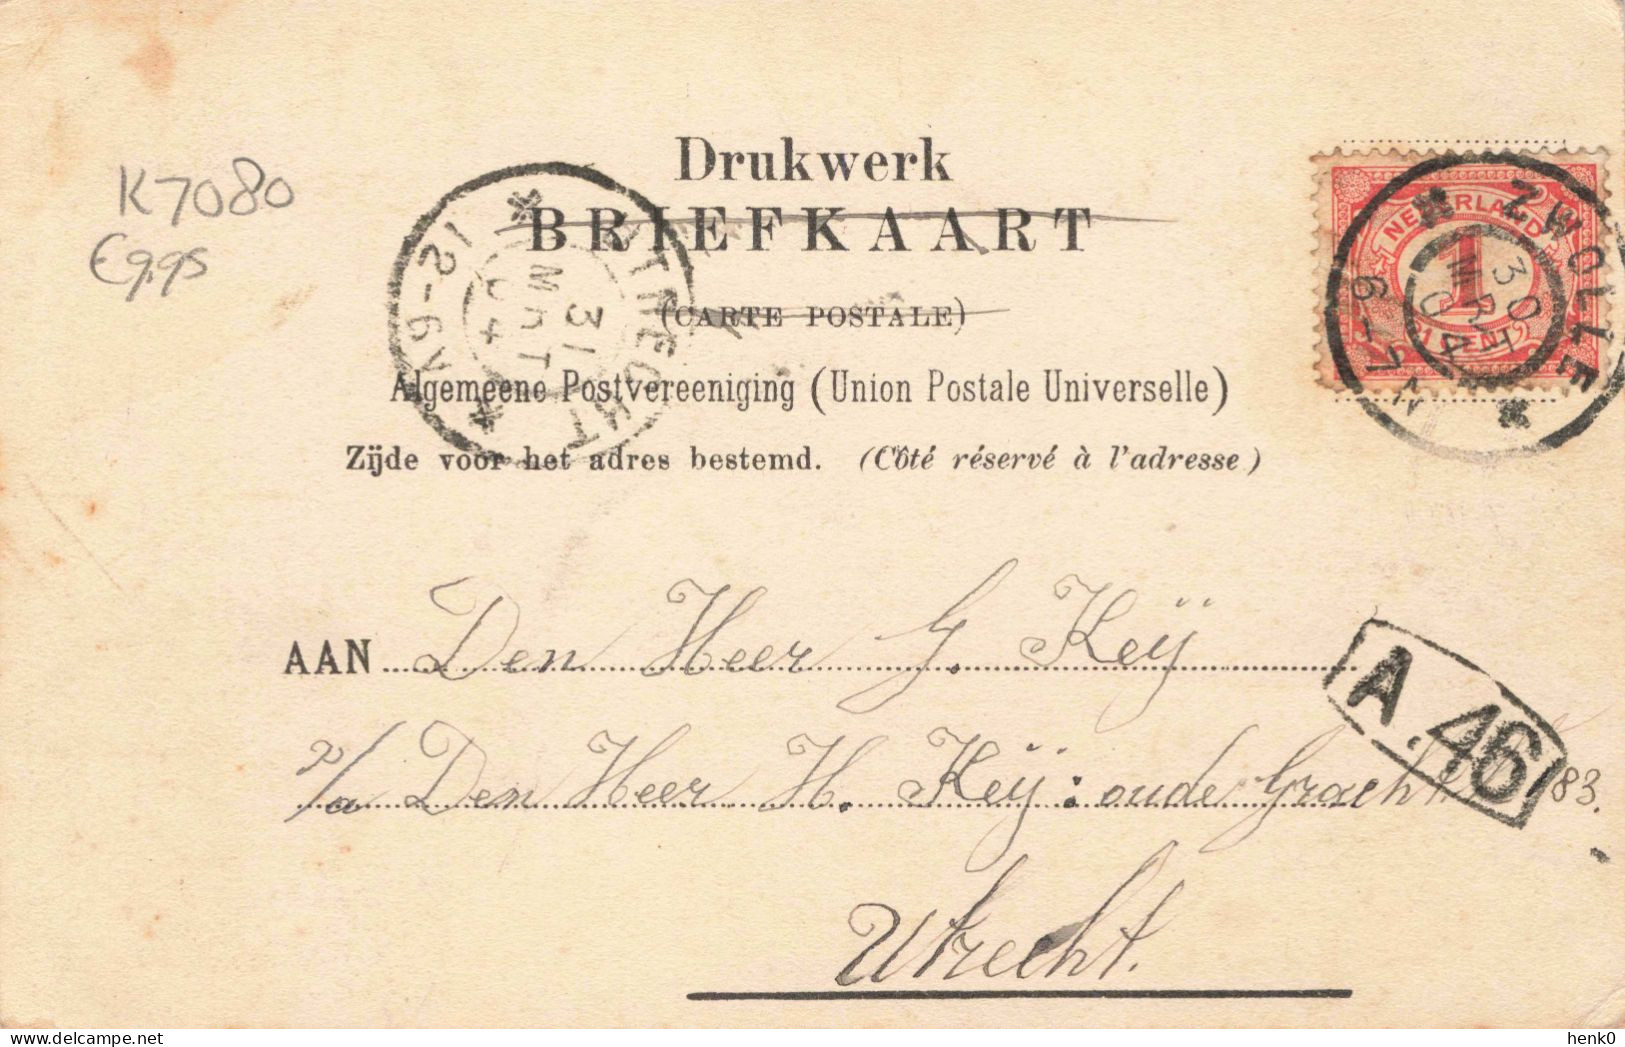 Drukwerk
BRIEFKAART
(CARTE POSTALE)
Algemeene Postvereeniging (Union Postale Universelle)
Zijde voor het adres bestemd. (Côté réservé à l'adresse)
K7080
€9,95
UTRECHT
31 MRT 04
12-6V
NEDERLAND
1
1 CENT
ZWOLLE
30 MRT 04
6-7N
AAN Den Heer G. Keij
p/a Den Heer H. Keij: oude Gracht 183.
A.46
Utrecht.
henk0